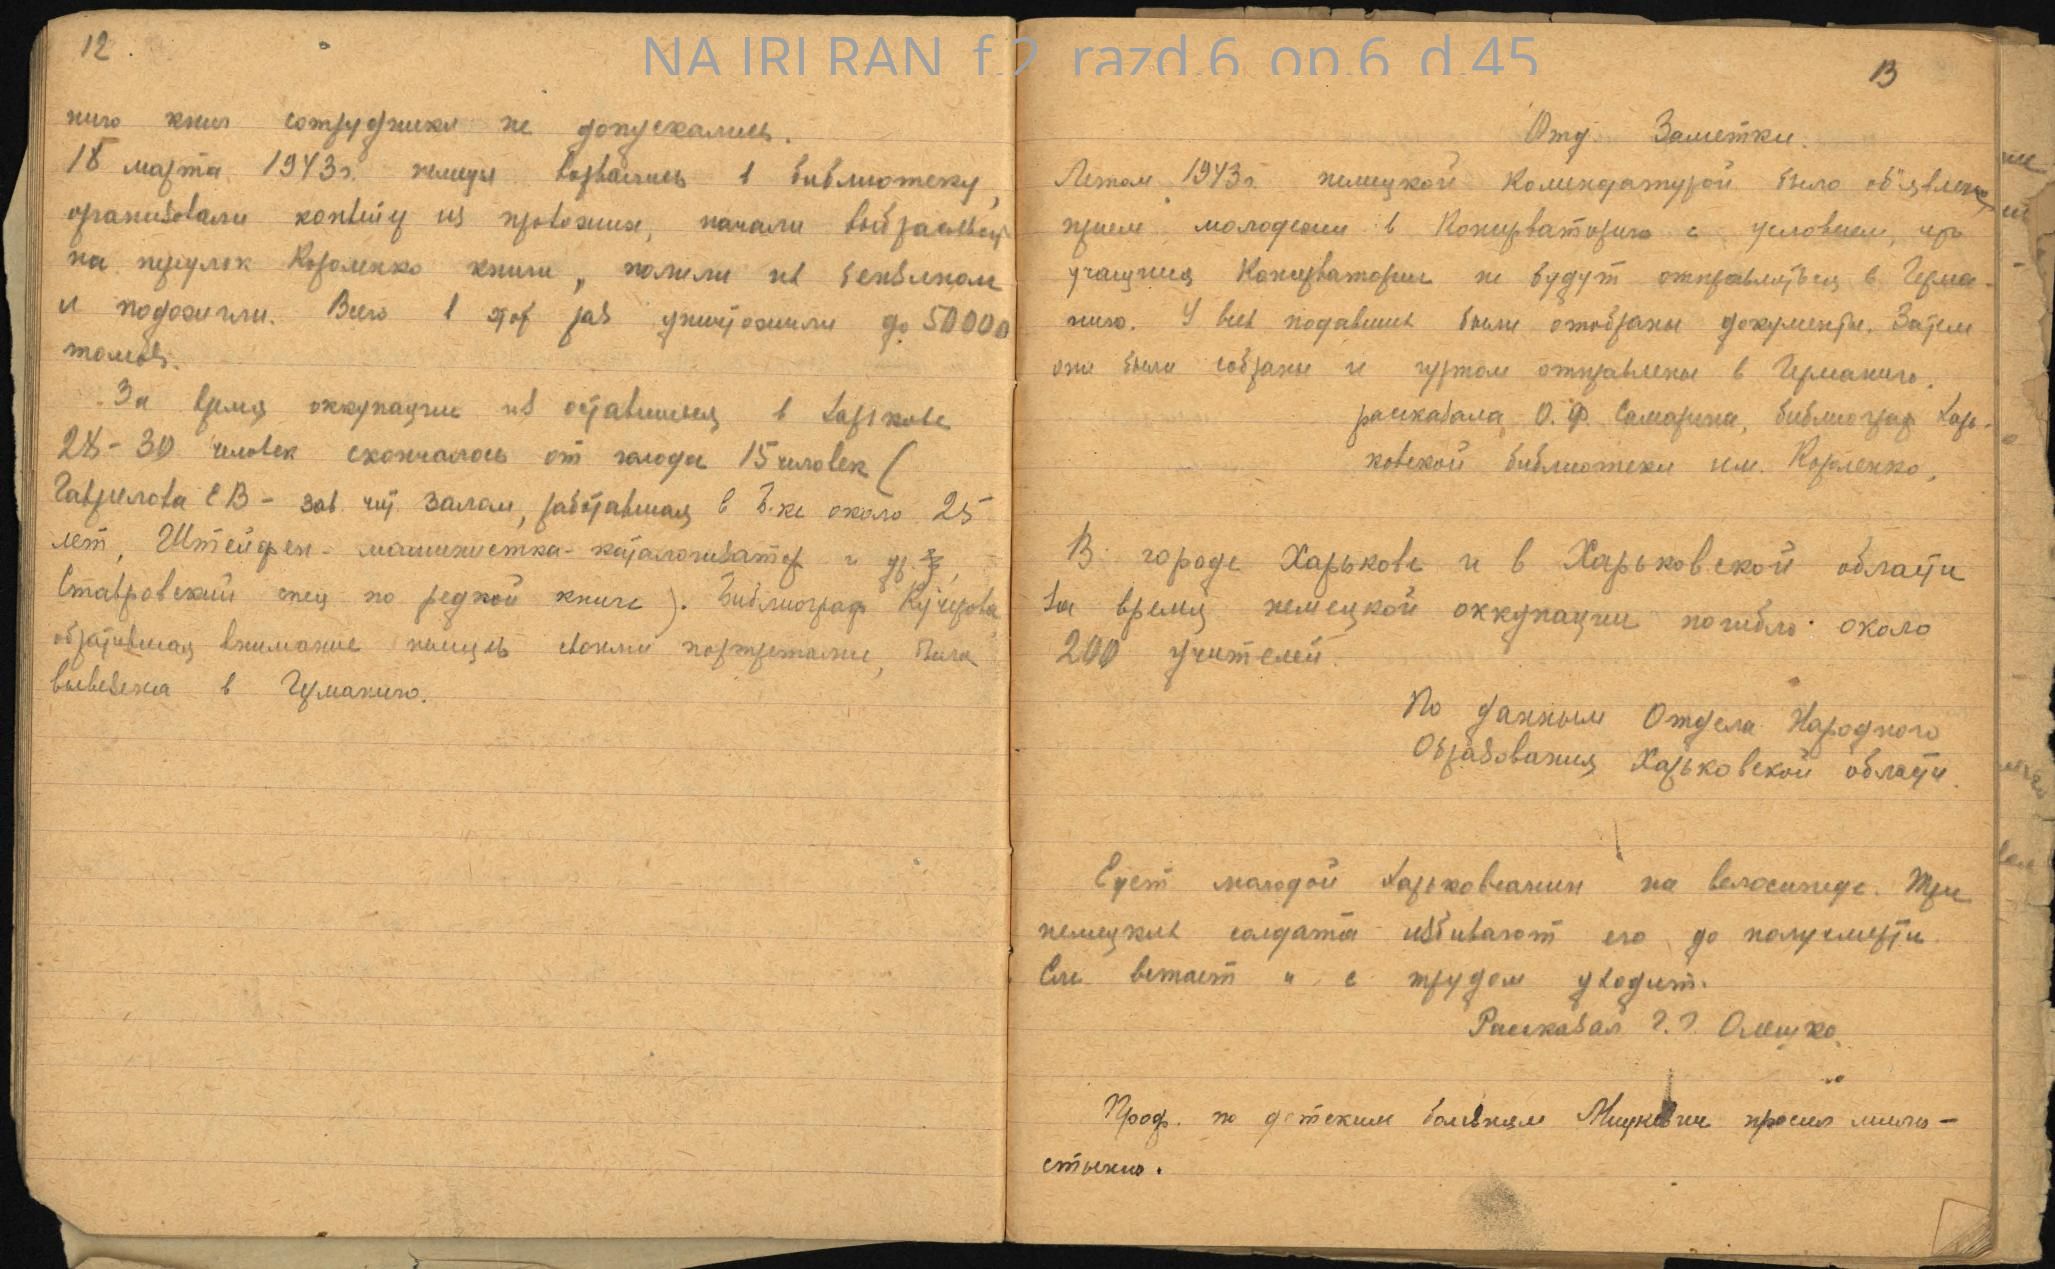 NA IRI RAN f.2 razd.6 op.6 d.45
12
нию книг сотрудники не допускались.
18 марта 1943 г. немцы ворвались в библиотеку,
организовали конвейер из прохожих, начали выбрасывать
на переулок Короленко книги, полили их бензином
и подожгли. Всего в этот раз уничтожили до 50000
томов.
За время оккупации из оставшихся в Харькове
28-30 человек скончалось от голода 15 человек (
Гаврилова Е В - зав. чит залом, работавшая в б-ке около 25
лет, Штейфен - машинистка-каталогизатор и др.,
Ставровский спец по редкой книге). Библиограф Кучерова
обратившая внимание немцев своими портретами, была
вывезена в Германию.
13
Отд. Заметки.
Летом 1943 г. немецкой Комендатурой было объявлено,
прием молодежи в Консерваторию с условием, что
учащиеся Консерватории не будут отправляться в Герма-
нию. У всех подавших были отобраны документы. Затем
они были собраны и гуртом отправлены в Германию.
рассказала О. Ф. Самарина, библиограф Харь-
ковской библиотеки им. Короленко.
В городе Харькове и в Харьковской области
за время немецкой оккупации погибло около
200 учителей.
По данным Отдела Народного
Образования Харьковской области.
Едет молодой харьковчанин на велосипеде. Три
немецких солдата избивают его до полусмерти.
Ели встает и с трудом уходит.
Рассказал ?.?. Олешко.
Проф. по детским болезням Мицкевич просил мило-
стыню.